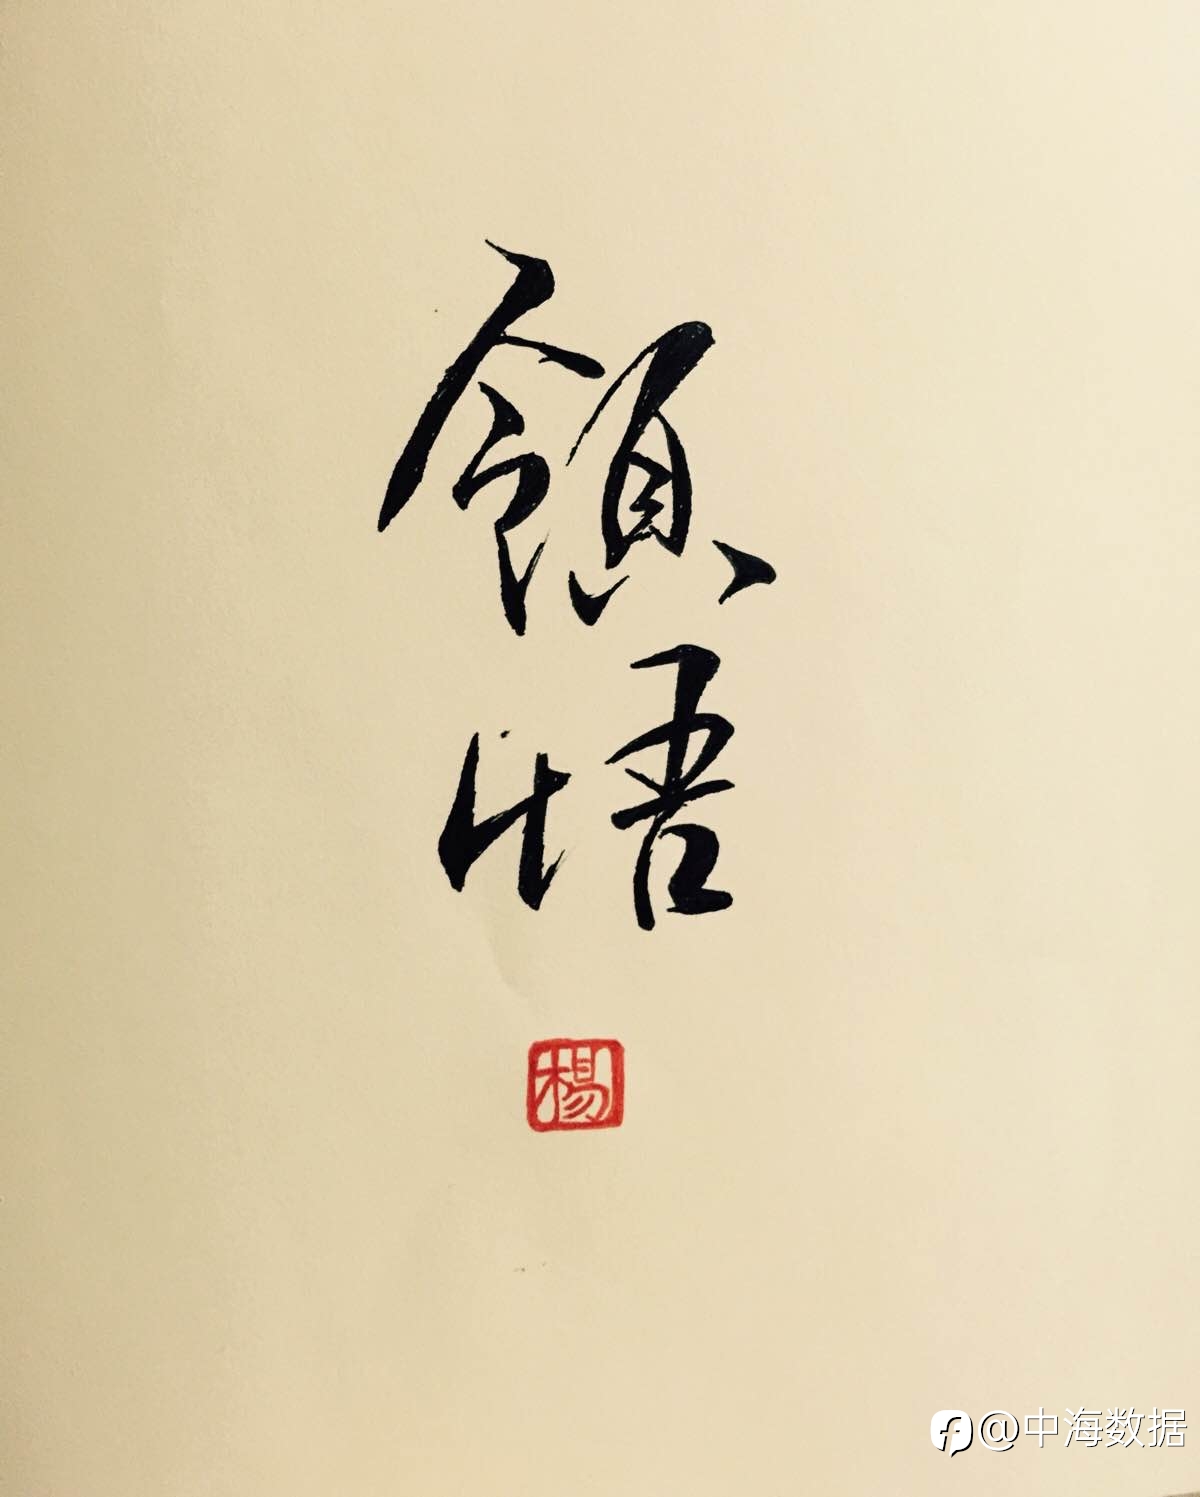 領
悟
楊
@中海数据